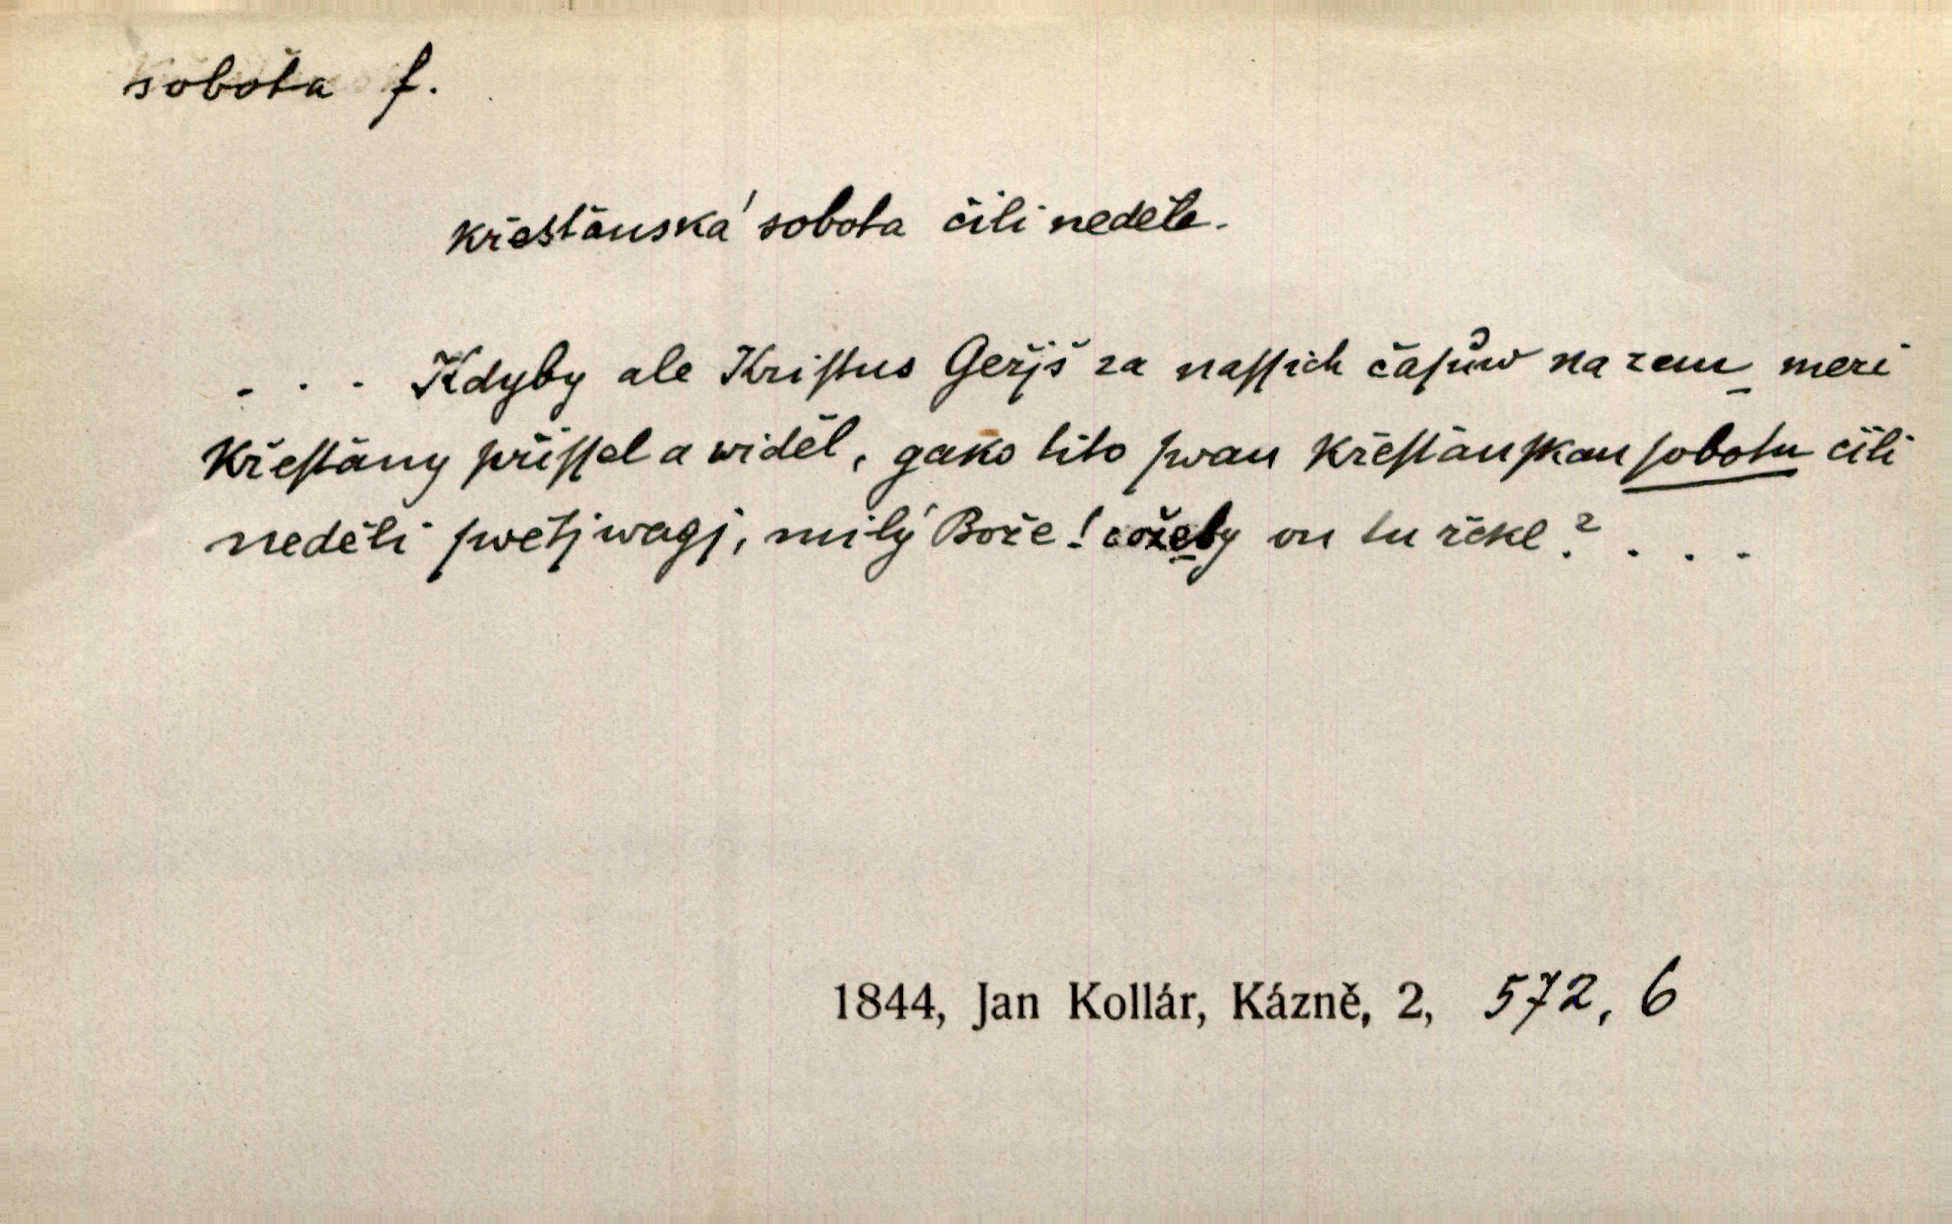 sobota f.
křesťanská sobota čili neděle.
. . . Kdyby ale Kriſtus Gežjš za naſſich čaſůw na zem mezi
Křeſťany přiſſel a widěl, gako tito ſwau křeſťanſkau ſobotu čili
neděli ſwětj wagj, milý Bože! cožeby on tu řekl? . . .
1844, Jan Kollár, Kázně, 2, 572, 6